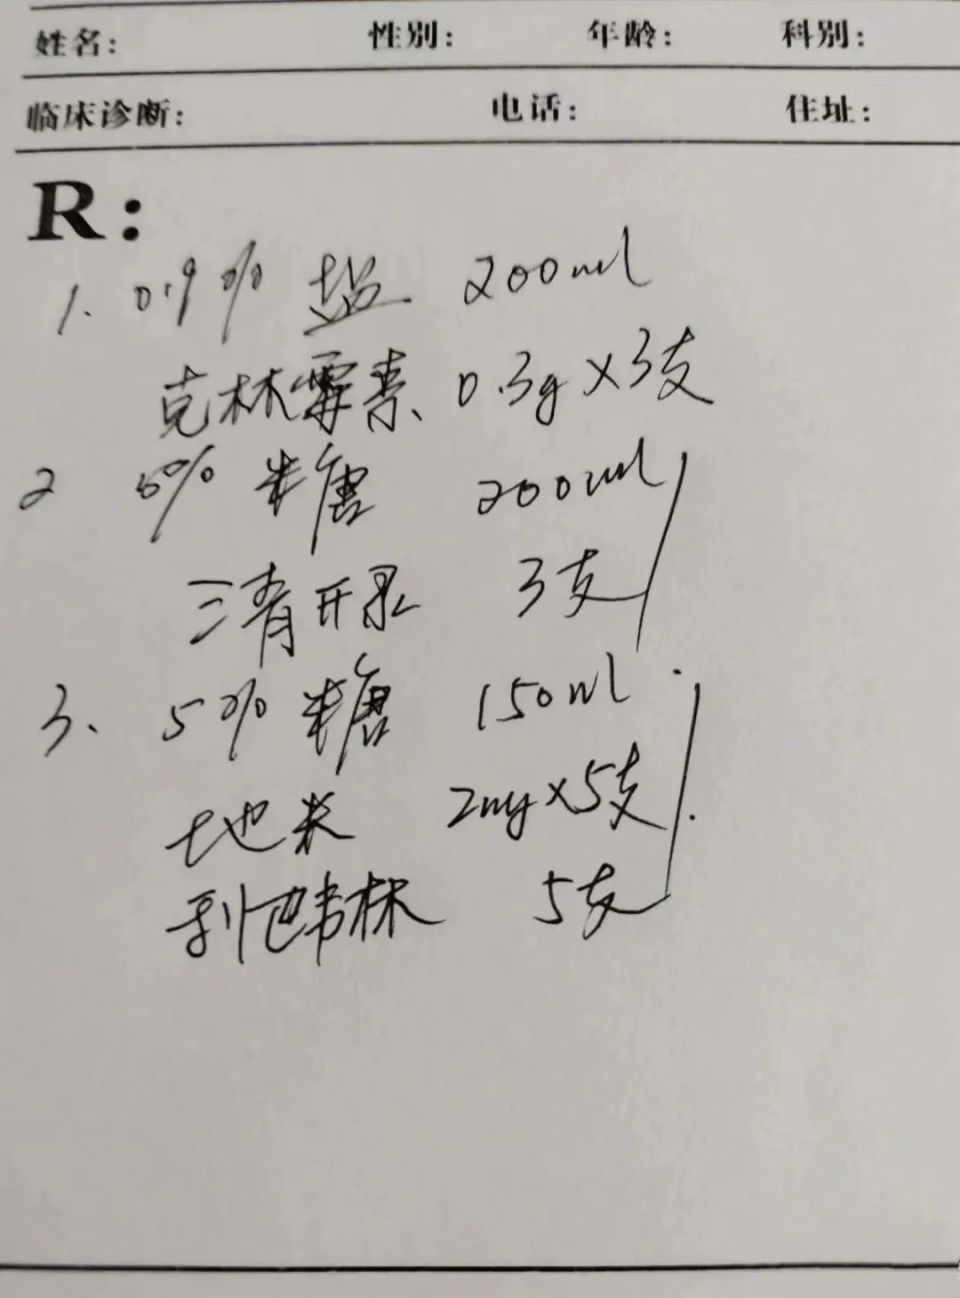 姓名: 性别: 年龄: 科别:
临床诊断: 电话: 住址:
R:
1. 0.9% 盐 200ml
克林霉素 0.3g×3支
2 5% 糖 200ml
清开灵 3支
3. 5% 糖 150ml
地米 2mg×5支
利巴韦林 5支